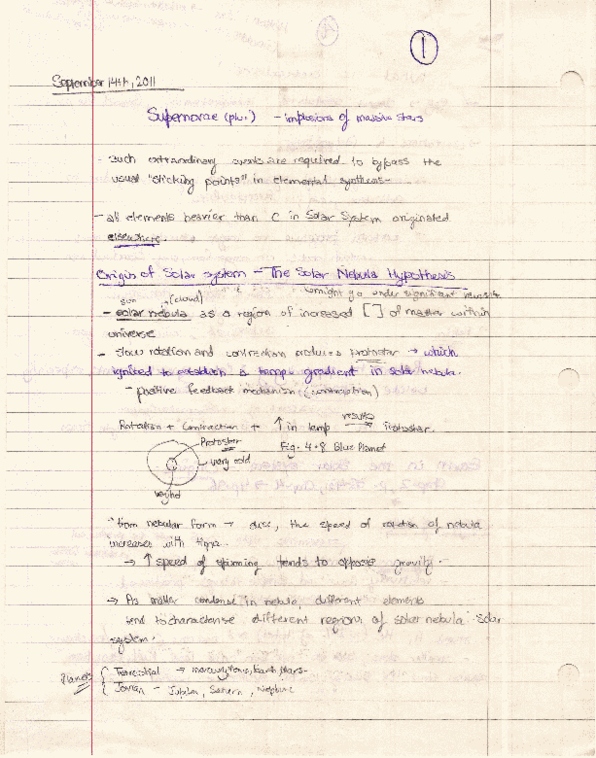 1
September 14th, 2011
Supernovae (plu.) - implosions of massive stars
- such extraordinary events are required to bypass the
usual "sticking points" in elemental synthesis-
- all elements heavier than C in Solar System originated
elsewhere.
Origin of Solar system - The Solar Nebula Hypothesis
might go under significant
sun (cloud)
- solar nebula as a region of increased [ ] of matter within
universe
- slow rotation and contraction produces protostar → which
ignited to establish a temp gradient in solar nebula.
- positive feedback mechanism (contraction)
Rotation + Contraction + ↑ in temp results → Protostar.
Protostar
Fig- 4-8 Blue Planet
very cold
very hot
from nebular form → disc, the speed of rotation of nebula
increases with time.
→ ↑ speed of spinning tends to oppose gravity-
→ As matter condense in nebula, different elements
tend to characterise different regions of solar nebula solar
system.
Planets { Terrestrial → mercury, Venus, Earth, Mars-
{ Jovian - Jupiter, Saturn, Neptune